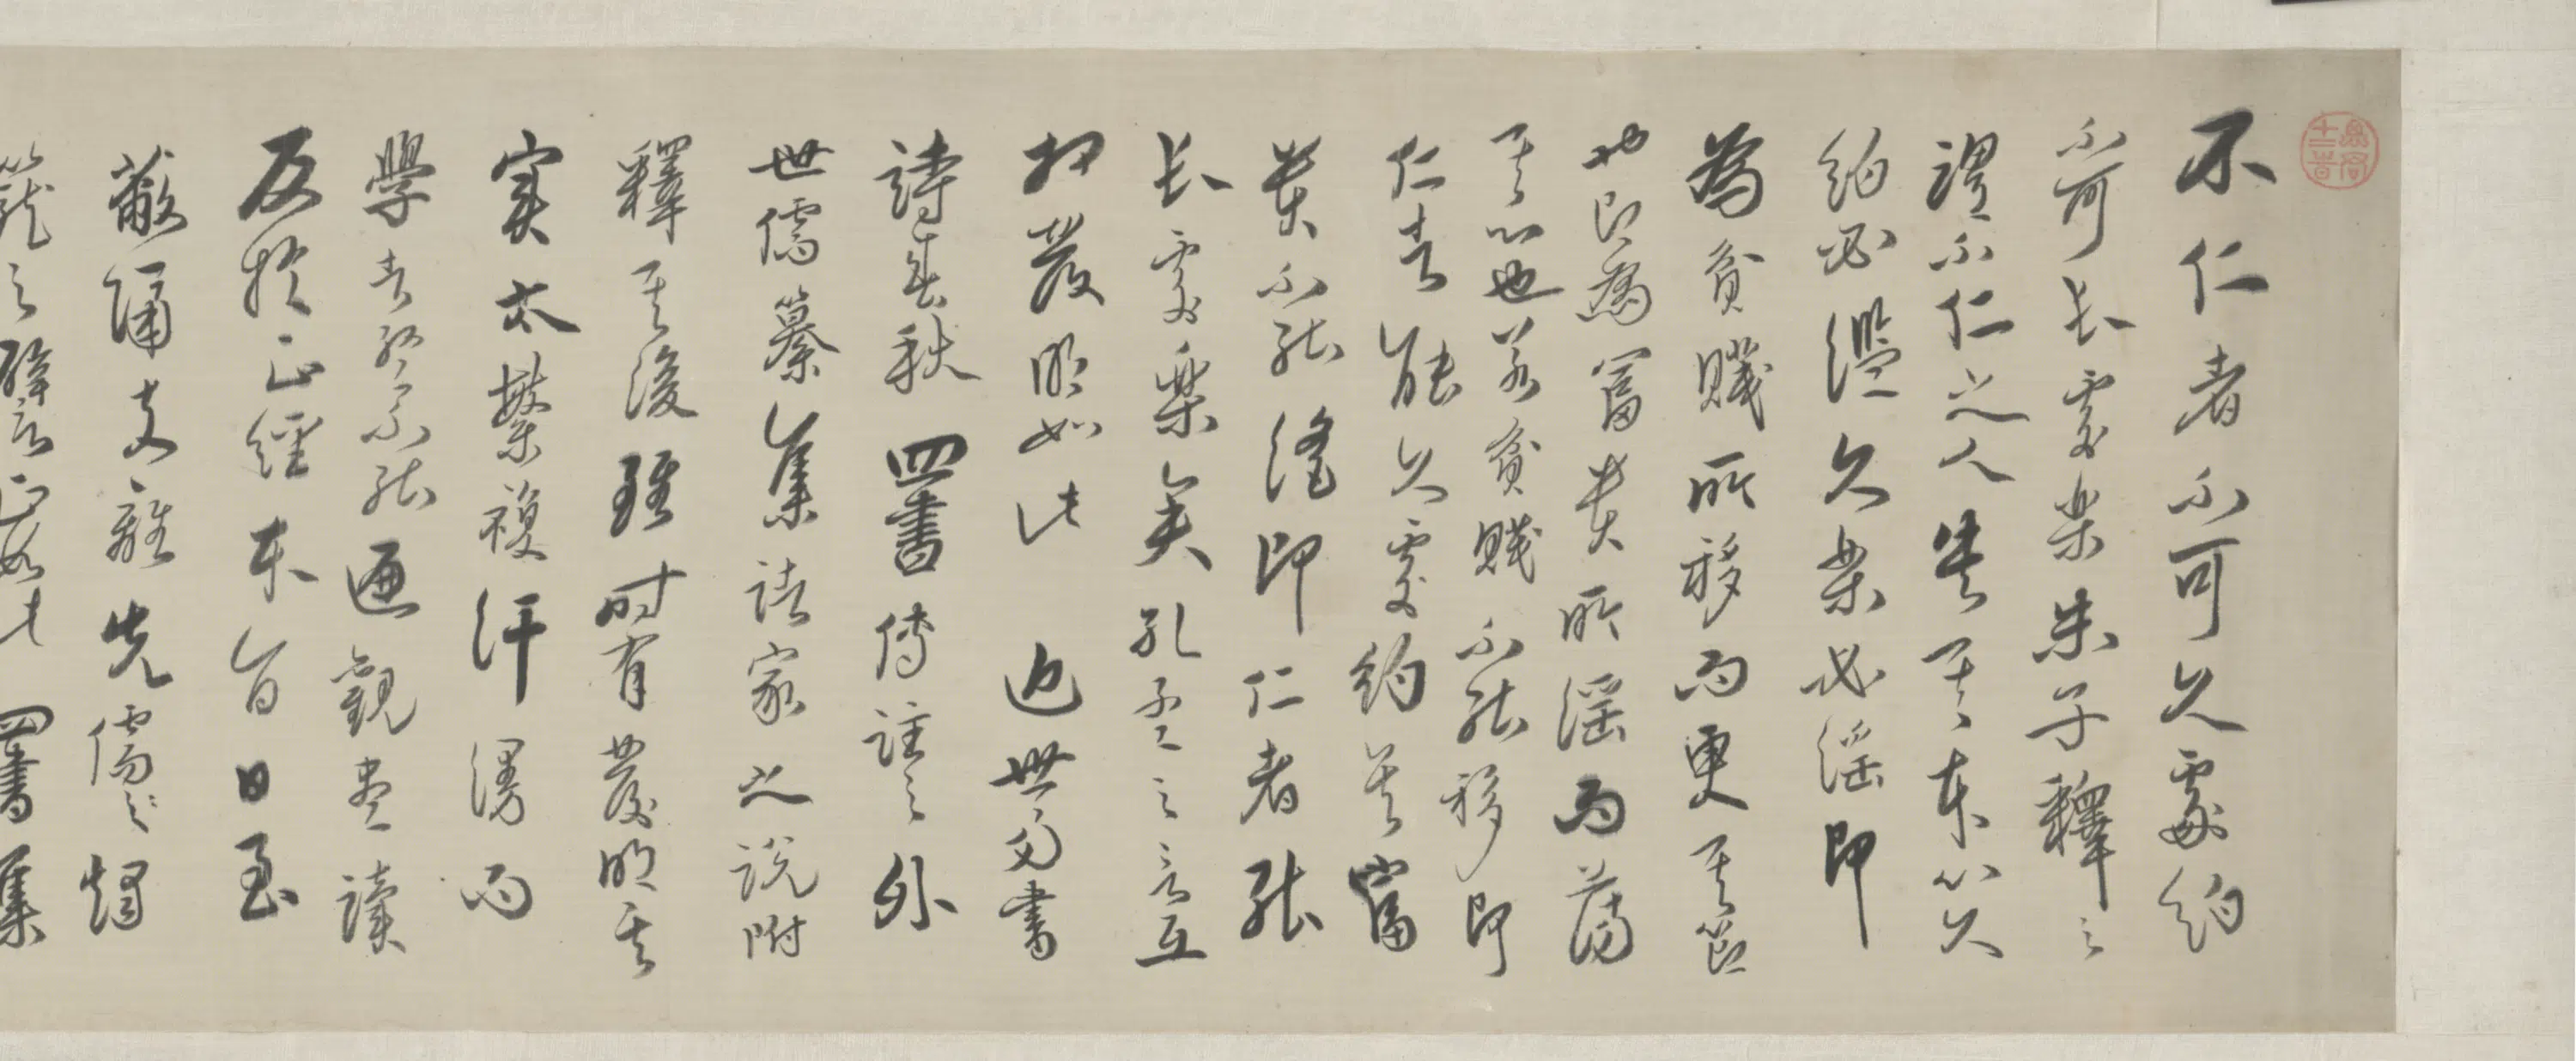 不仁者不可久處約
不可長處樂朱子釋之
謂不仁之人失其本心久
約必濫久樂必淫即
為貧賤所移而更其節
也即為富貴所淫而蕩
其心也若貧賤不能移即
仁者能久處約其富
貴不能淫即仁者能
長處樂矣孔孟之言互
相發明如此 近世學書
詩春秋四書傳註之外
世儒纂集諸家之說附
釋其後雖時有發明其
實太繁複汗漫而
學者終不能通觀盡讀
反於正經本旨日至
蔽隔支離先儒燭
籠之 四書集